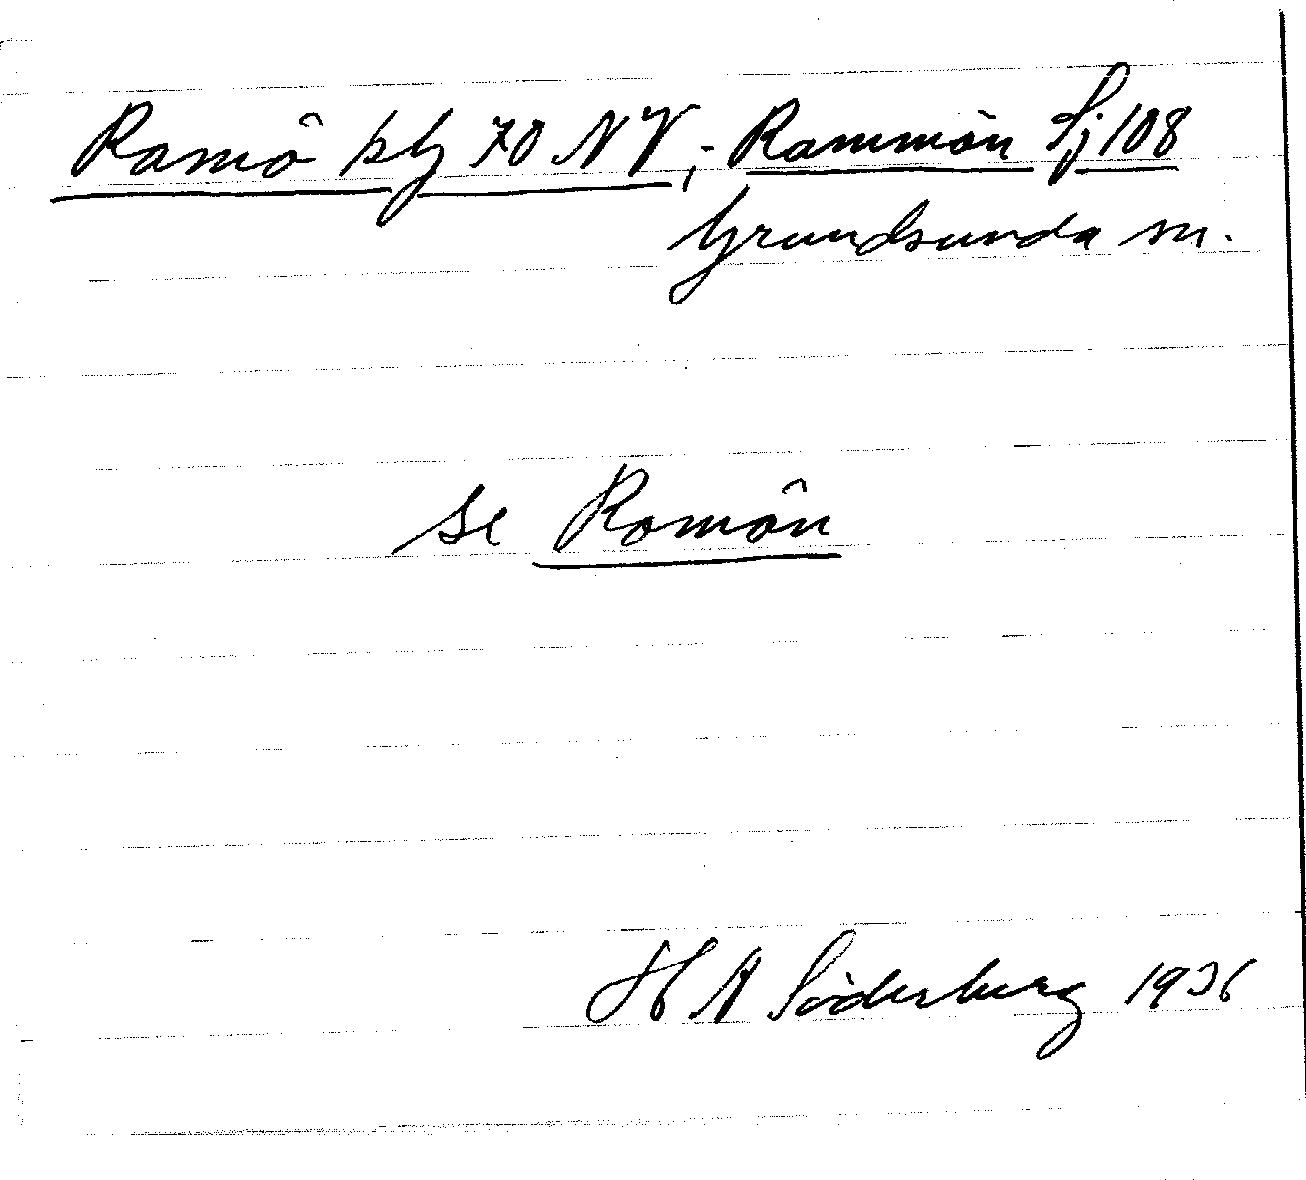 Ramö kbl 70 NV; Rammön Sj 108
Grundsunda sn.
se Ramön
H A Söderberg 1936